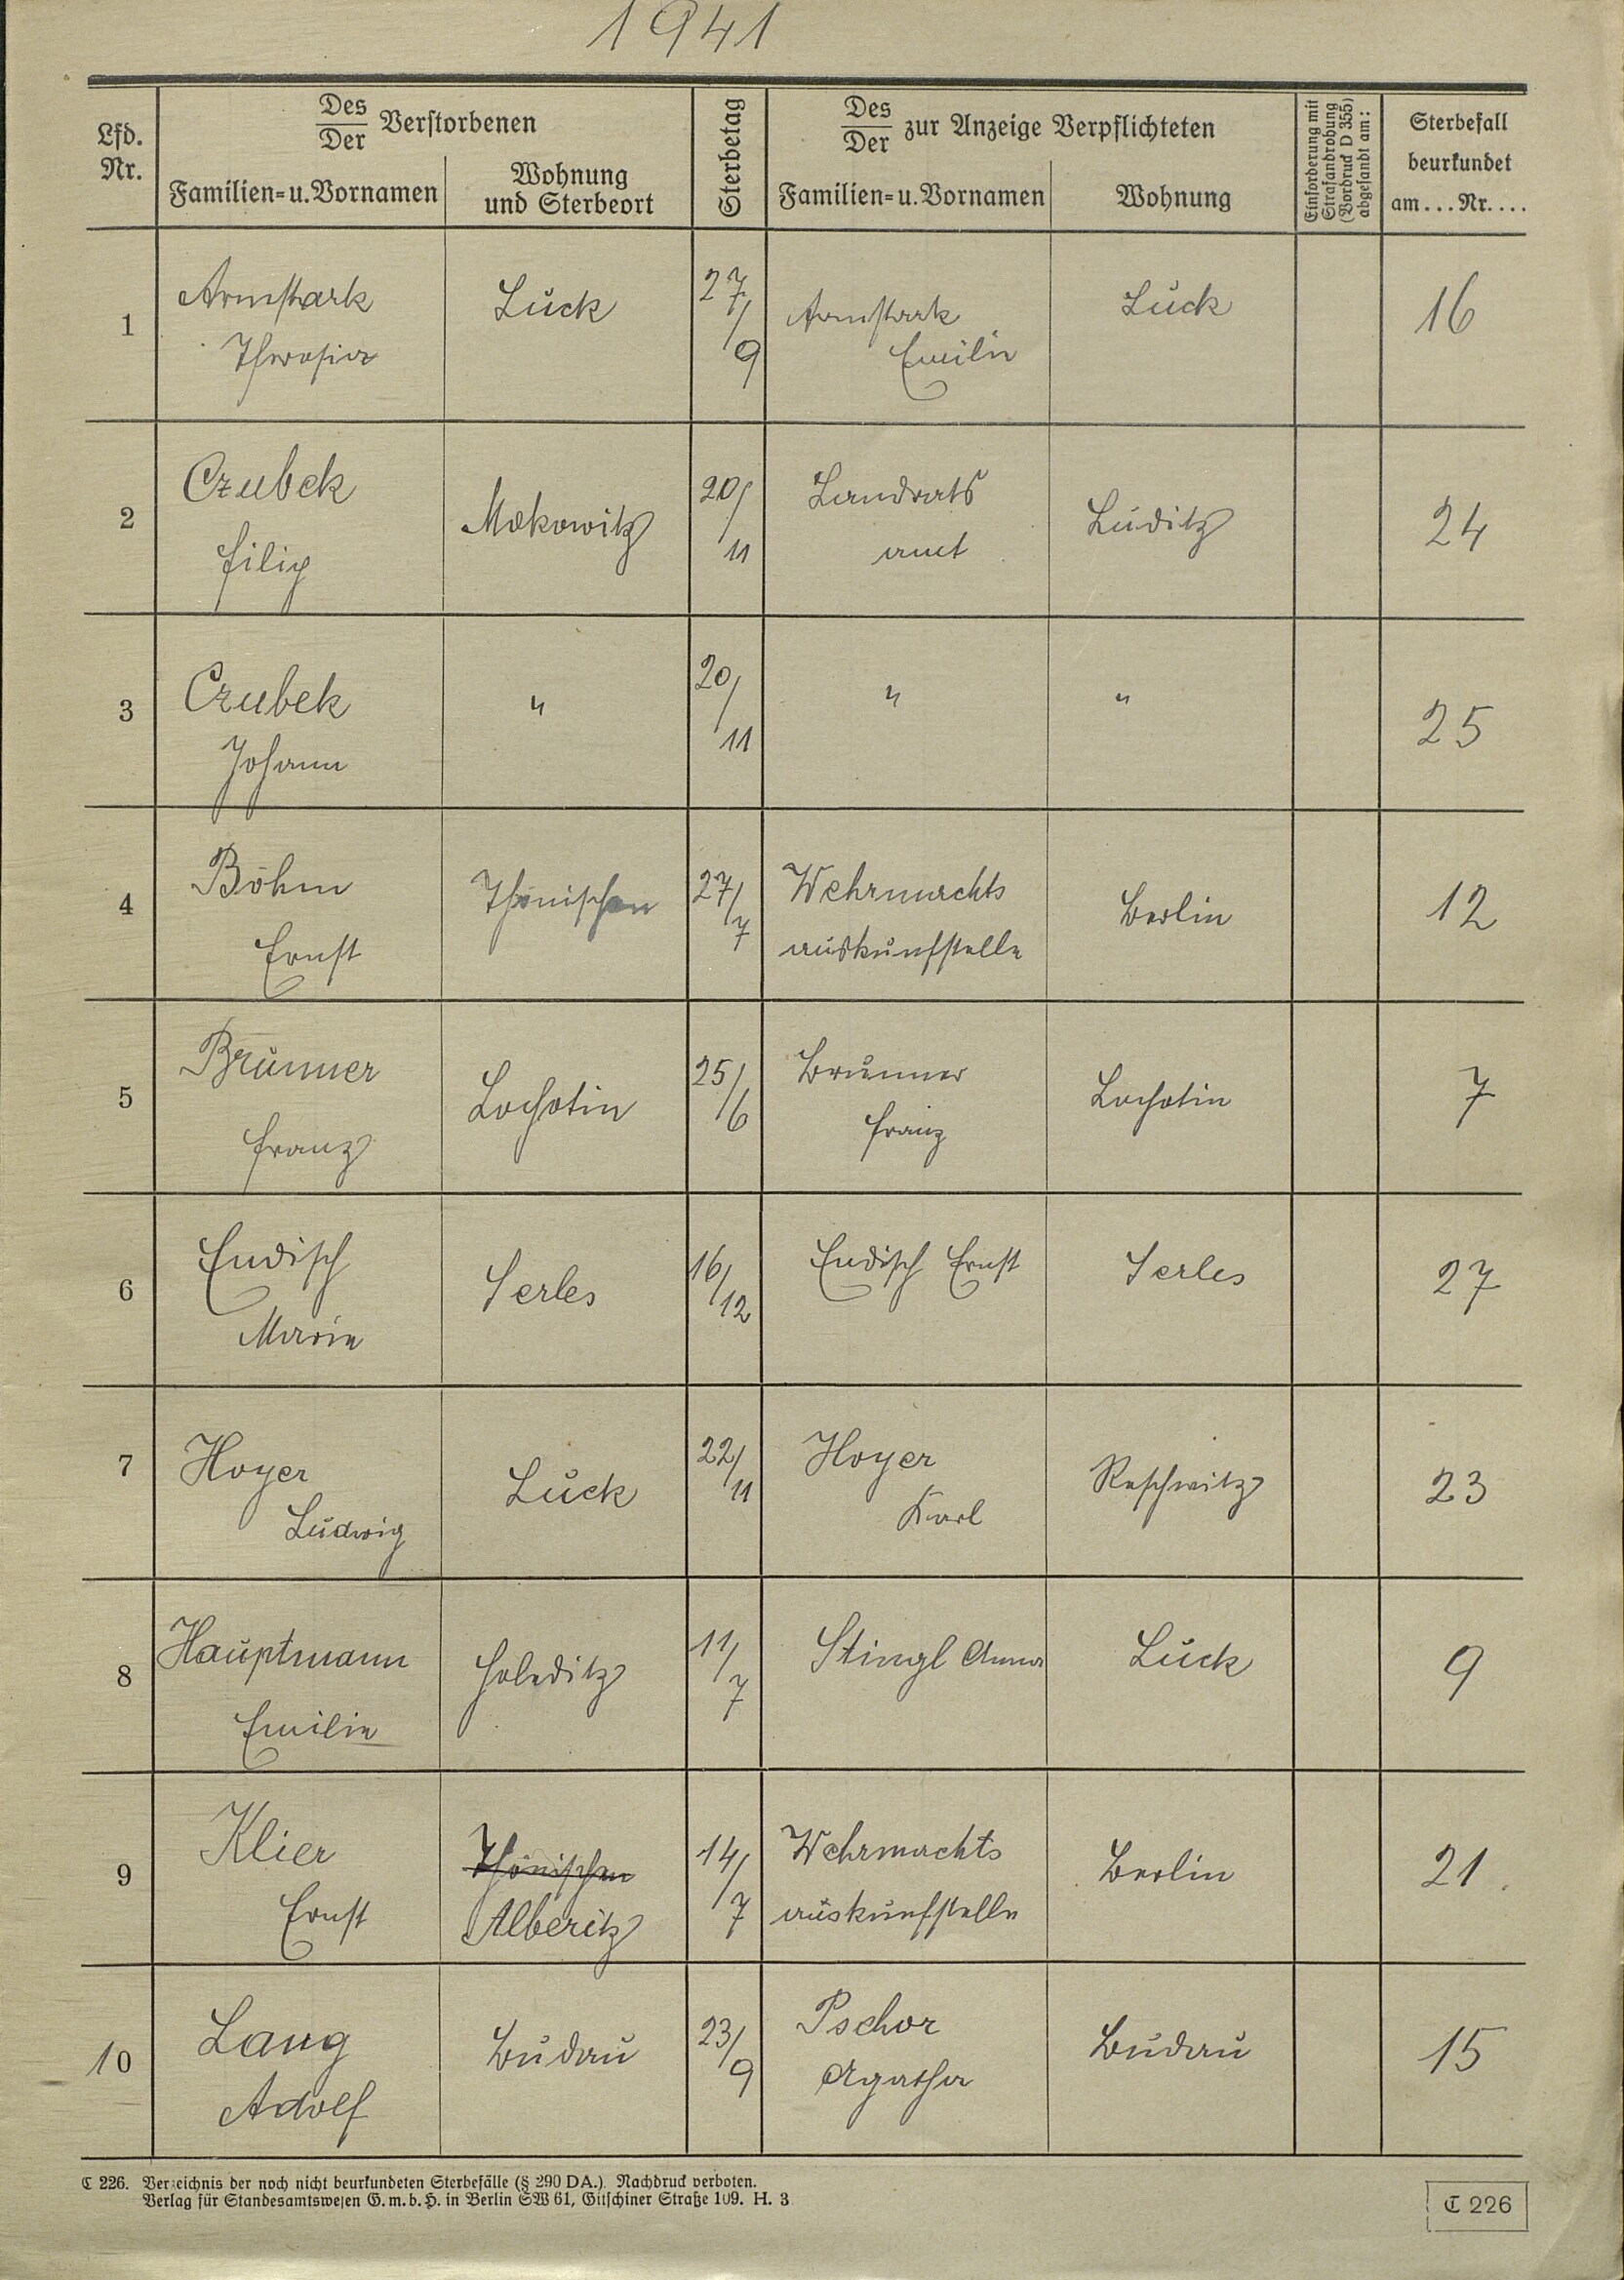 1941
Lfd. Nr.
Des/Der Verstorbenen
Familien- u. Vornamen
Wohnung und Sterbeort
Sterbetag
Des/Der zur Anzeige Verpflichteten
Familien- u. Vornamen
Wohnung
Einforderung mit Strafandrohung (Vordruck D 355) abgesandt am:
Sterbefall beurkundet am...Nr....
1 Armstark Lück 27/9 Armstark Lück 16
Theresia Emilie
2 Czubek Mokowitz 20/11 Landrats Luditz 24
Filip amt
3 Czubek " 20/11 " " 25
Johann
4 Böhm Thönischen 27/7 Wehrmachts Berlin 12
Ernst auskunfstelle
5 Brunner Lochotin 25/6 Brunner Lochotin 7
Franz Franz
6 Endisch Serles 16/12 Endisch Ernst Serles 27
Marie
7 Hoyer Luck 22/11 Hoyer Reschwitz 23
Ludwig Karl
8 Hauptmann Holeditz 11/7 Stingl Anna Luck 9
Emilie
9 Klier Thönischen 14/7 Wehrmachts Berlin 21
Ernst Alberitz auskunfstelle
10 Lang Budau 23/9 Pschor Budau 15
Adolf Agatha
C 226. Verzeichnis der noch nicht beurkundeten Sterbefälle (§ 290 DA.). Nachdruck verboten.
Verlag für Standesamtswesen G. m. b. H. in Berlin SW 61, Gitschiner Straße 109. H. 3
C 226